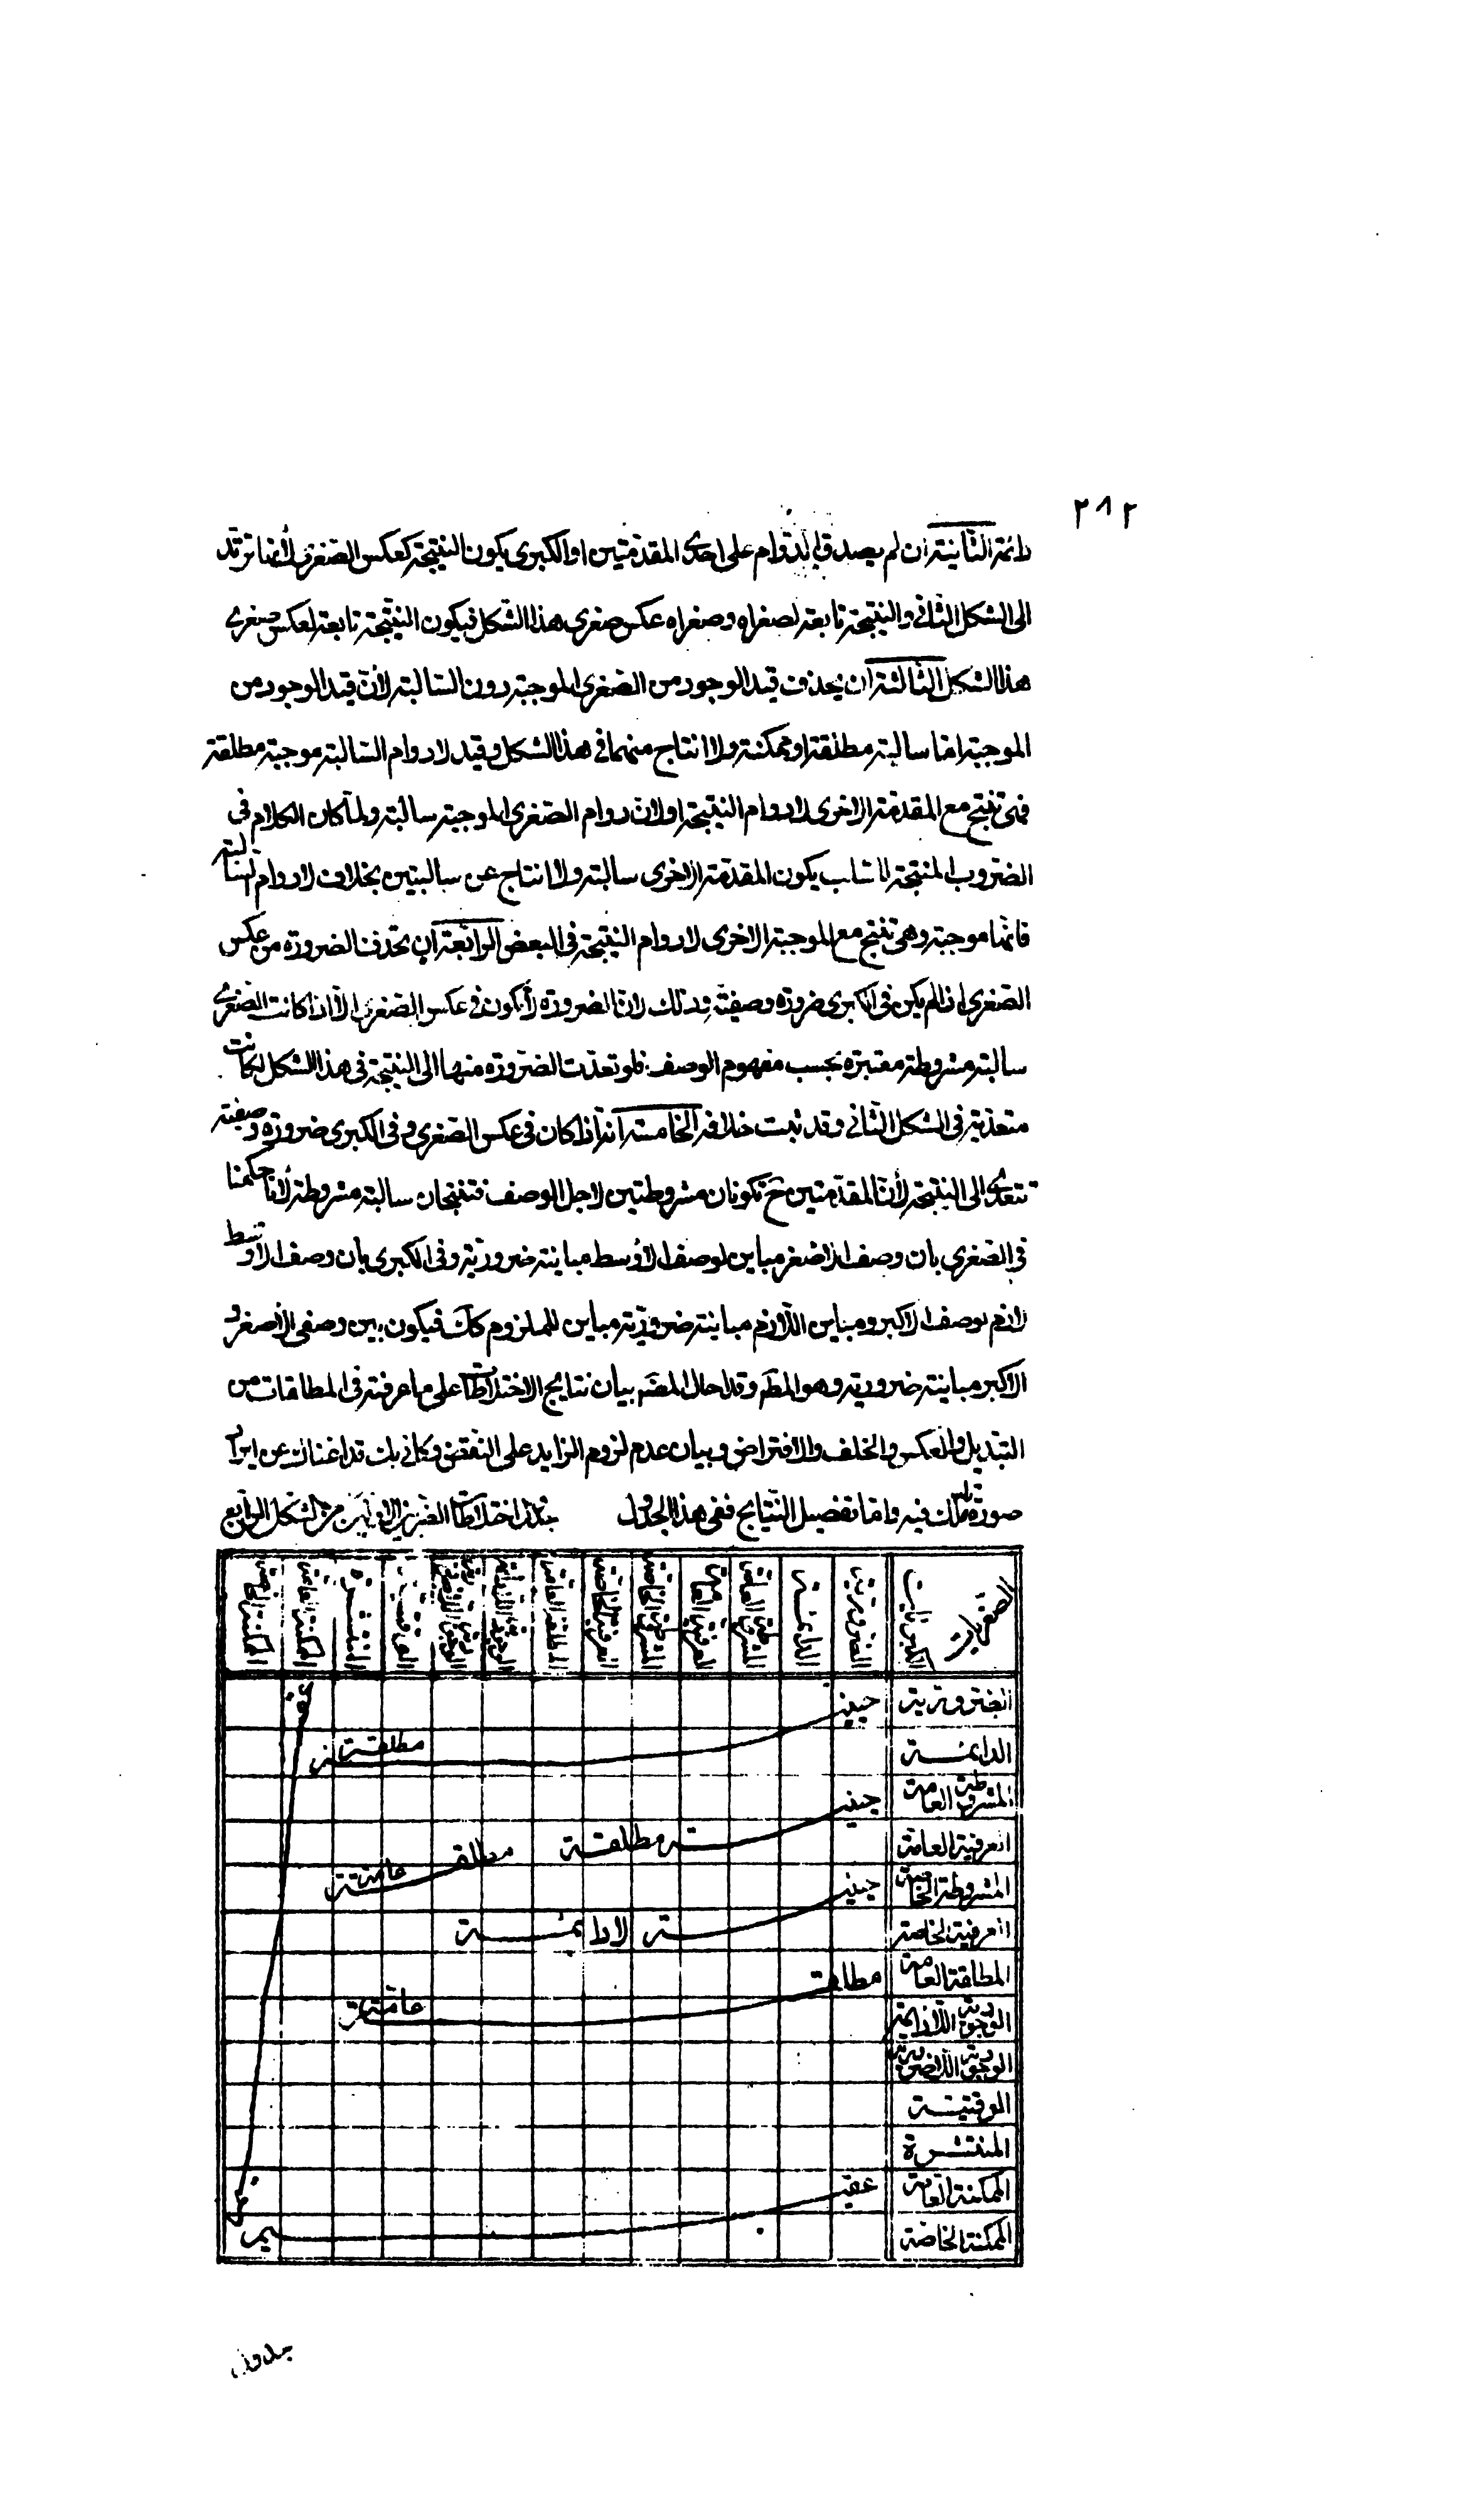 ٢٨٢
دائمة الثانية ان لم يصدق الدوام على احدى المقدمتين او الكبرى يكون النتيجة كعكس الصغرى لأنها ترتد
الى الشكل الثانى والنتيجة تابعة لصغراه وصغراه عكس صغرى هذا الشكل فيكون النتيجة تابعة لعكس صغرى
هذا الشكل الثالثة ان يحذف قيد الوجود من الصغرى الموجبة دون السالبة لأن قيد الوجود من
الموجبة اما سالبة مطلقة او ممكنة ولا انتاج منهما فى هذا الشكل وقيد لادوام السالبة موجبة مطلقة
فهى تنتج مع المقدمة الاخرى لادوام النتيجة اولان دوام الصغرى الموجبة سالبة ولما كان الكلام فى
الضروب المنتجة للسلب يكون المقدمة الاخرى سالبة ولا انتاج عن سالبتين بخلاف لادوام السالبة
فانها موجبة وهى تنتج مع الموجبة الاخرى لادوام النتيجة فى البعض الرابعة ان تحذف الضرورة من عكس
الصغرى اذا لم يكن فى الكبرى ضرورة وصفية وذلك لان الضرورة لا يكون فى عكس الصغرى الا اذا كانت الصغرى
سالبة مشروطة معتبرة بحسب مفهوم الوصف فلو تعدت الضرورة منها الى النتيجة فى هذا الشكل لكانت
متعدية فى الشكل الثانى وقد ثبت خلافه الخامسة انه اذا كان فى عكس الصغرى وفى الكبرى ضرورة وصفية
تتعدى الى النتيجة لأن المقدمتين ح تكونان مشروطتين لاجل الوصف فتنتجان سالبة مشروطة لأنا حكمنا
فى الصغرى بان وصف الاصغر مباين لوصف الأوسط مباينة ضرورية وفى الكبرى بان وصف الاوسط
لازم لوصف الاكبر ومباين اللازم مباينة ضرورية مباين للملزوم كك فيكون بين وصفى الأصغر و
الاكبر مباينة ضرورية وهو المط وقد احال المص بيان نتايج الاختلاطات على ما عرفته فى المطلقات من
التبديل والعكس والخلف والافتراض وبيان عدم لزوم الزايد على النقض وكانى بك قد اغناك عن ايراد
صورة فيه واما تفصيل النتايج ففى هذا الجدول اختلاطات الضربين الاولين من الشكل الرابع
الصغريات الكبريات الضرورية الدائمة المشروطة العامة العرفية العامة المشروطة الخاصة العرفية الخاصة المطلقة العامة الوجودية اللادائمة الوجودية اللاضرورية الوقتية المنتشرة الممكنة العامة الممكنة الخاصة
الضرورية حينية
الدائمة مطلقة
المشروطة العامة حينية
العرفية العامة مطلقة مطلقة عامة
المشروطة الخاصة حينية
العرفية الخاصة لادائمة
المطلقة العامة مطلقة
الوجودية اللادائمة عامة
الوجودية اللاضرورية
الوقتية
المنتشرة
الممكنة العامة عقيم
الممكنة الخاصة